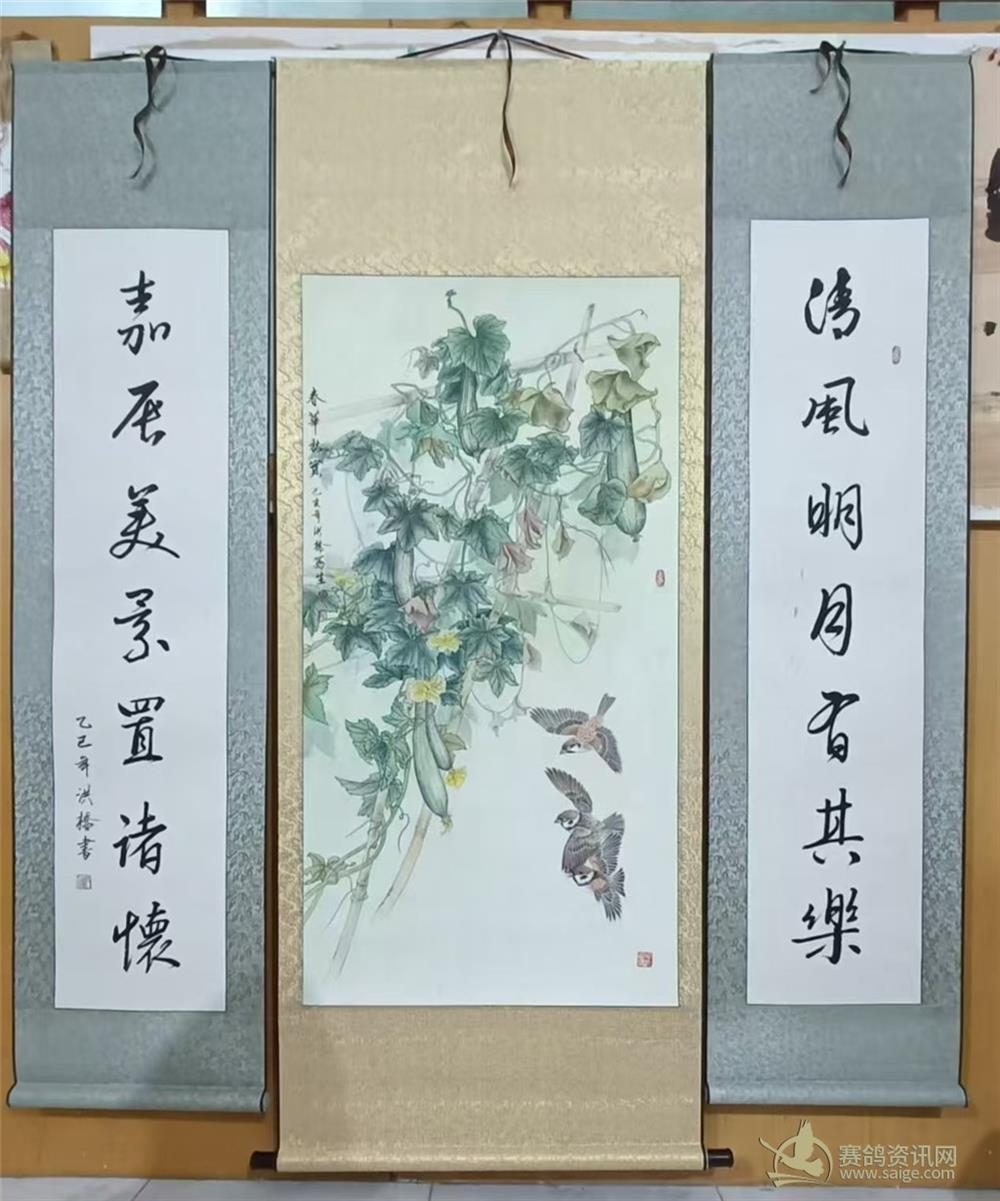 清風明月有其樂
春華秋實
乙亥年洪橋寫生
嘉辰美景置诸懷
乙巳年洪橋書
赛鸽资讯网
www.saige.com